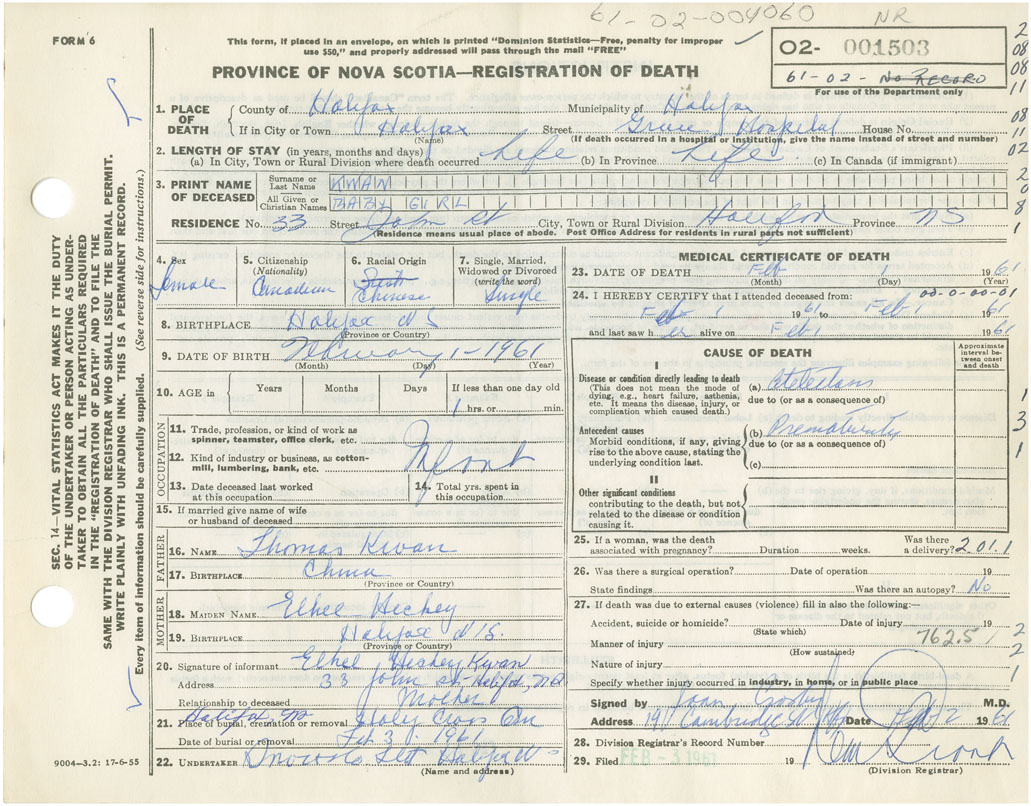 61-02-004060 NR
FORM 6
This form, if placed in an envelope, on which is printed "Dominion Statistics—Free, penalty for improper
use $50," and properly addressed will pass through the mail "FREE"
02- 001503
61-02- No RECORD
For use of the Department only
PROVINCE OF NOVA SCOTIA—REGISTRATION OF DEATH
1. PLACE OF DEATH
County of Halifax Municipality of Halifax
If in City or Town Halifax Street Grace Hospital House No.
(Name) (If death occurred in a hospital or institution, give the name instead of street and number)
2. LENGTH OF STAY (in years, months and days)
(a) In City, Town or Rural Division where death occurred Life (b) In Province Life (c) In Canada (if immigrant)
3. PRINT NAME OF DECEASED
Surname or Last Name KWAN
All Given or Christian Names BABY GIRL
RESIDENCE No. 33 Street John St City, Town or Rural Division Halifax Province NS
(Residence means usual place of abode. Post Office Address for residents in rural parts not sufficient)
4. Sex Female
5. Citizenship (Nationality) Canadian
6. Racial Origin Chinese
7. Single, Married, Widowed or Divorced (write the word) Single
8. BIRTHPLACE Halifax NS
(Province or Country)
9. DATE OF BIRTH February 1-1961
(Month) (Day) (Year)
10. AGE in Years Months Days If less than one day old
1 hrs. or min.
OCCUPATION
11. Trade, profession, or kind of work as spinner, teamster, office clerk, etc.
12. Kind of industry or business, as cotton-mill, lumbering, bank, etc.
13. Date deceased last worked at this occupation
14. Total yrs. spent in this occupation
15. If married give name of wife or husband of deceased
FATHER
16. NAME Thomas Kwan
17. BIRTHPLACE China
(Province or Country)
MOTHER
18. MAIDEN NAME Ethel Hickey
19. BIRTHPLACE Halifax N.S.
(Province or Country)
20. Signature of informant Ethel Hickey Kwan
Address 33 John St Halifax, NS
Relationship to deceased Mother
21. Place of burial, cremation or removal Holy Cross Cem
Halifax NS
Date of burial or removal Feb 3, 1961
22. UNDERTAKER Snows Ltd Halifax NS
(Name and address)
9004—3.2: 17-6-55
MEDICAL CERTIFICATE OF DEATH
23. DATE OF DEATH Feb 1 1961
(Month) (Day) (Year)
24. I HEREBY CERTIFY that I attended deceased from: 00-0-00-01
Feb 1 1961 to Feb 1 1961
and last saw her alive on Feb 1 1961
CAUSE OF DEATH
Approximate interval between onset and death
I
Disease or condition directly leading to death
(This does not mean the mode of dying, e.g., heart failure, asthenia, etc. It means the disease, injury, or complication which caused death.)
(a) Atelectasis
due to (or as a consequence of)
Antecedent causes
Morbid conditions, if any, giving rise to the above cause, stating the underlying condition last.
(b) Prematurity
due to (or as a consequence of)
(c)
II
Other significant conditions
contributing to the death, but not related to the disease or condition causing it.
25. If a woman, was the death associated with pregnancy? Duration weeks. Was there a delivery? 201.1
26. Was there a surgical operation? Date of operation 19
State findings Was there an autopsy? No
27. If death was due to external causes (violence) fill in also the following:—
Accident, suicide or homicide? Date of injury 19
(State which)
Manner of injury 762.5
(How sustained)
Nature of injury
Specify whether injury occurred in industry, in home, or in public place
Signed by Joan Crosby M.D.
Address 1911 Cambridge St Hfx Date Feb 2 1961
28. Division Registrar's Record Number
29. Filed FEB - 3 1961 19
(Division Registrar)
SEC. 14—VITAL STATISTICS ACT MAKES IT THE DUTY
OF THE UNDERTAKER OR PERSON ACTING AS UNDER-
TAKER TO OBTAIN ALL THE PARTICULARS REQUIRED
IN THE "REGISTRATION OF DEATH" AND TO FILE THE
SAME WITH THE DIVISION REGISTRAR WHO SHALL ISSUE THE BURIAL PERMIT.
WRITE PLAINLY WITH UNFADING INK. THIS IS A PERMANENT RECORD.
Every item of information should be carefully supplied. (See reverse side for instructions.)
2
08
08
11
08
11
02
2
0
8
1
1
3
1
2
2
1